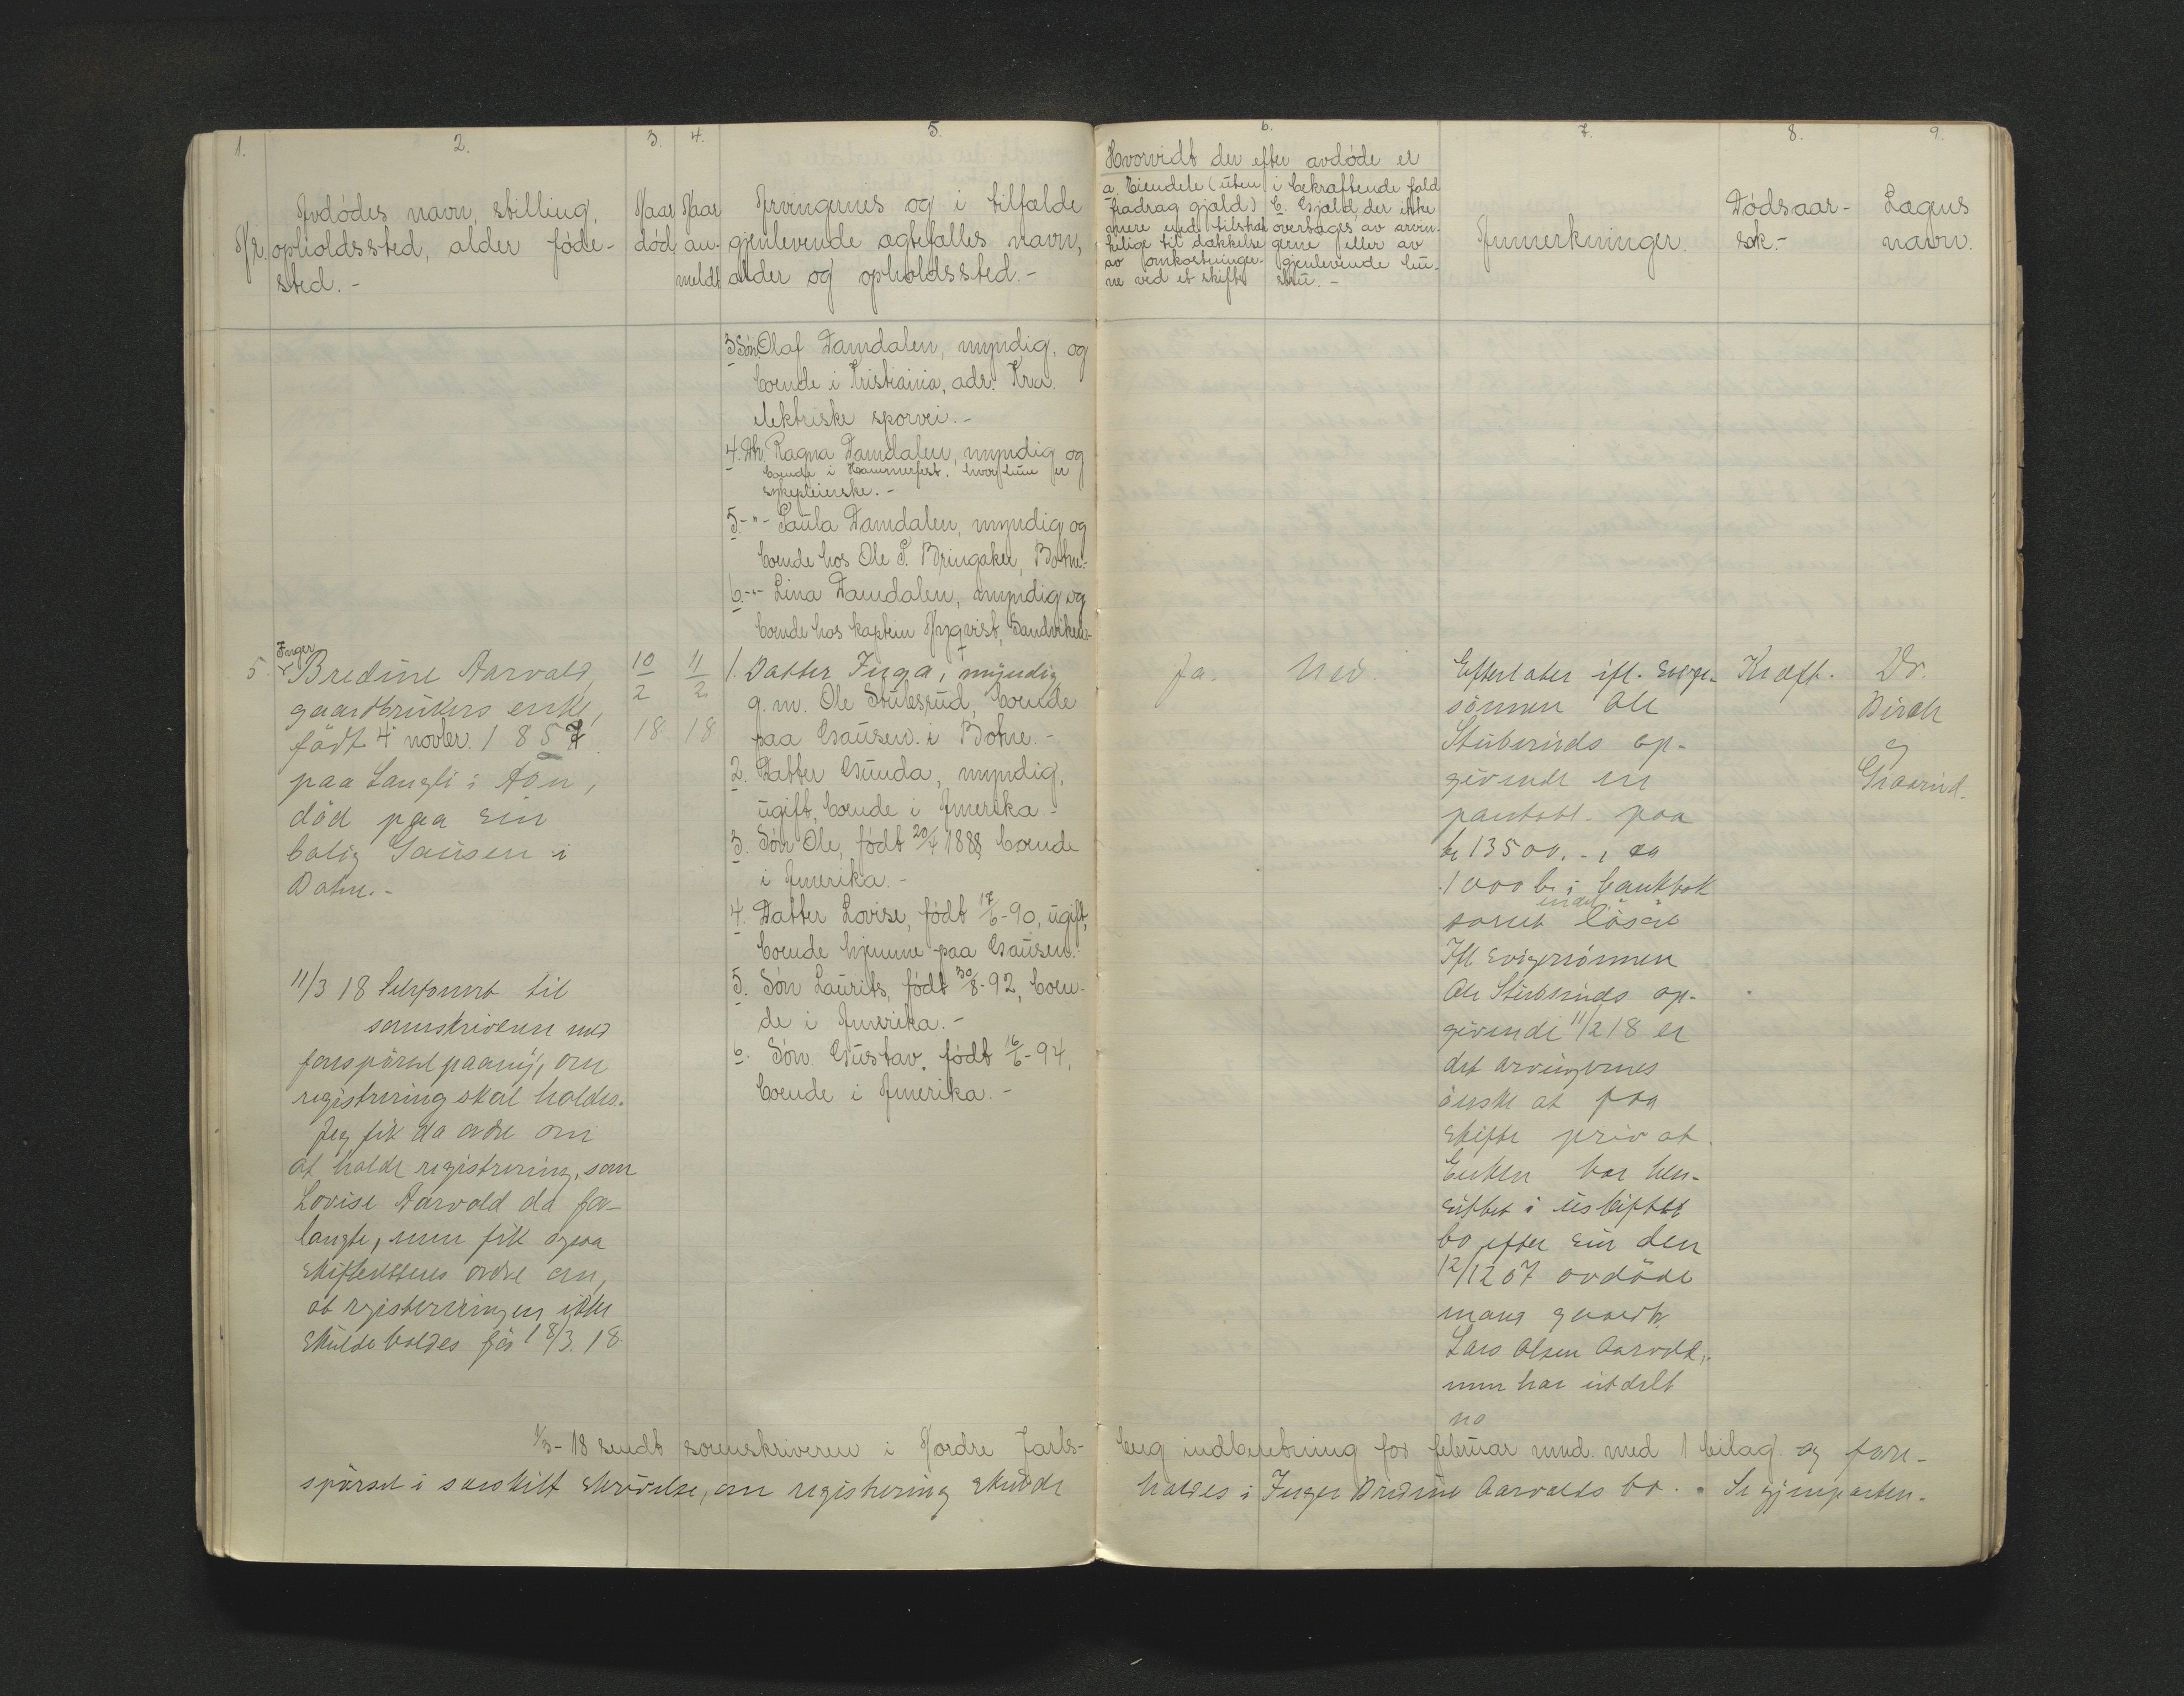 1. 2. 3. 4. 5. 6. 7. 8. 9.
Nr.
Avdødes navn, stilling,
opholdssted, alder føde-
sted. -
Naar
død
Naar
an-
meldt
Arvingernes og i tilfælde
gjenlevende ægtefælles navn,
alder og opholdssted. -
Hvorvidt der efter avdøde er
a. Eiendele (uten
fradrag gjæld)
mere end tilstræk
kelige til dækkelse
av omkostninger-
ne ved et skifte
i bekræftende fald
b. Gjæld, der ikke
overtages av arvin-
gerne eller av
gjenlevende hu-
stru. -
Anmerkninger.
Dødsaar-
sak. -
Lægens
navn.
3 Søn Olaf Damdalen, myndig, og
boende i Kristiania, adr. Kra.
elektriske sporvei. -
4. Dtr. Ragna Damdalen, myndig og
boende i Hammerfest, hvor hun er
sykepleierske. -
5. -"- Paula Damdalen, myndig og
boende hos Ole S. Bringaker, Botne.
6. -"- Lina Damdalen, myndig og
boende hos kaptein Nyqvist, Sandviken.
Inger
5. Bredine Aarvold,
gaardbrukers enke,
født 4 novbr. 1857
paa Langli i Aon,
död paa sin
bolig Gausen i
Botne. -
10/2 18
11/2 18
1. Datter Inga, myndig
g. m. Ole Stubsrud, boende
paa Gausen i Botne. -
2. Datter Gunda, myndig,
ugift, boende i Amerika -
3. Søn Ole, født 20/7 1888 boende
i Amerika. -
4. Datter Lovise, født 17/6 - 90, ugift,
boende hjemme paa Gausen.
5. Søn Laurits, født 30/8 - 92, boen-
de i Amerika. -
6. Søn Gustav, født 16/6 - 94,
boende i Amerika. -
Ja.
Nei.
Efterlater ifl. svige-
sönnen Ole
Stubsruds op-
givende en
pantobl. paa
kr 13500. -, og
1000 kr i bankbok
samt endel lösöre
Ifl. svigersönnen
Ole Stubsruds op-
givende 11/2 18 er
det arvingernes
önske at faa
skifte privat.
Enken har hen-
sittet i uskiftet
bo efter sin den
12/12 07 avdöde
mand gaardbr.
Lars Olsen Aarvold,
men har utdelt
no
Kræft.
Dr.
Birch
Graarud.
11/3 18 telefonert til
sorenskriveren med
forespörsel paany, om
registrering skal holdes.
Jeg fik da ordre om
at holde registrering, som
Lovise Aarvold da for-
langte, men fik ogsaa
skifterettens ordre om,
at registreringen ikke
skulde holdes för 18/3. 18
1/3 - 18 sendt sorenskriveren i Nordre Jarls-
berg indberetning for februar mnd. med 1 bilag og fore-
spörsel i særskilt skrivelse, om registrering skulde
holdes i Inger Bredine Aarvolds bo. - Se gjenparten.